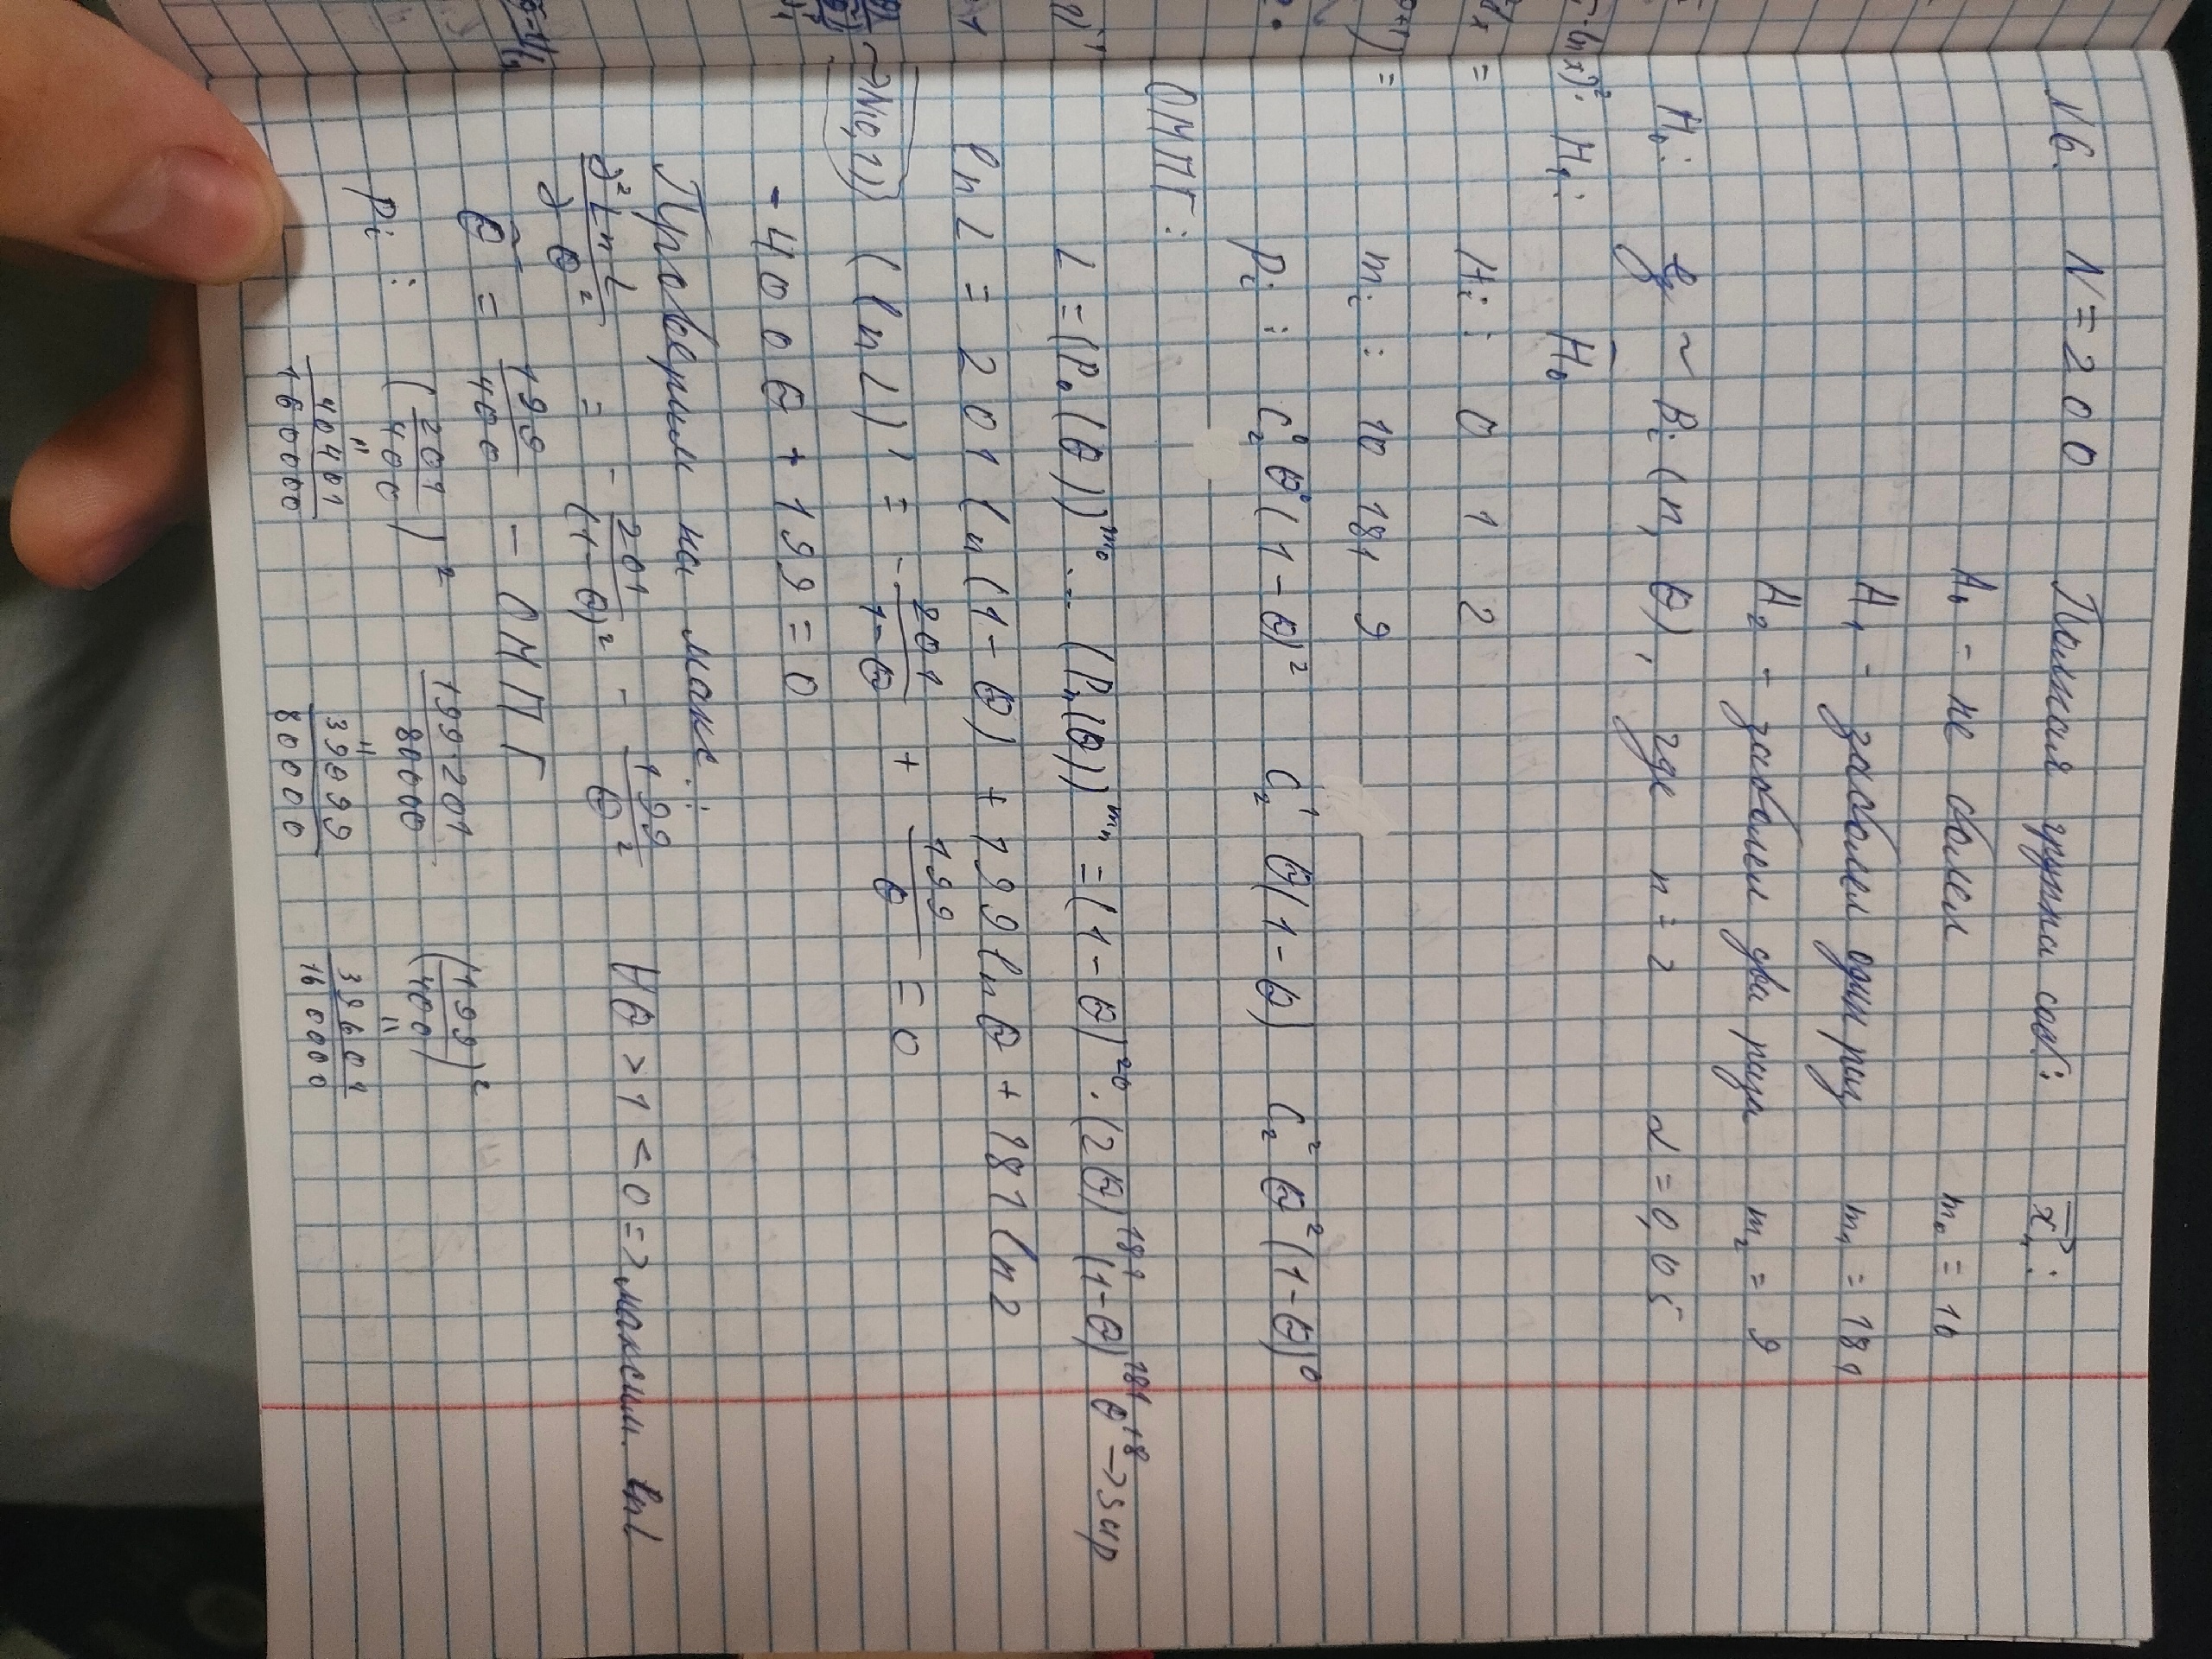 №6. N = 200 Полная группа соб.: x⃗ₙ:
A₀ - не болел m₀ = 10
A₁ - заболел один раз m₁ = 181
A₂ - заболел два раза m₂ = 9
H₀: ξ ~ Bi(n, θ), где n = 2 α = 0,05
H₁: H̄₀
Ai: 0 1 2
mi: 10 181 9
pi: C₂⁰ θ⁰(1-θ)² C₂¹ θ(1-θ) C₂² θ²(1-θ)⁰
ОМПГ:
L = (P₀(θ))^m₀ ... (Pₙ(θ))^mₙ = (1-θ)²⁰ · (2θ)¹⁸¹ (1-θ)¹⁸¹ θ¹⁸ → sup
ln L = 201 ln(1-θ) + 199 ln θ + 181 ln 2
→N(0,1)) (ln L)' = - 201/(1-θ) + 199/θ = 0
-400θ + 199 = 0
Проверим на макс.:
∂² Ln L/∂θ² = - 201/(1-θ)² - 199/θ² ∀θ > 1 < 0 => максим. ln L
θ̃ = 199/400 - ОМПГ
pi: (201/400)² 199·201/80000 (199/400)²
" " "
40401/160000 39999/80000 39601/160000